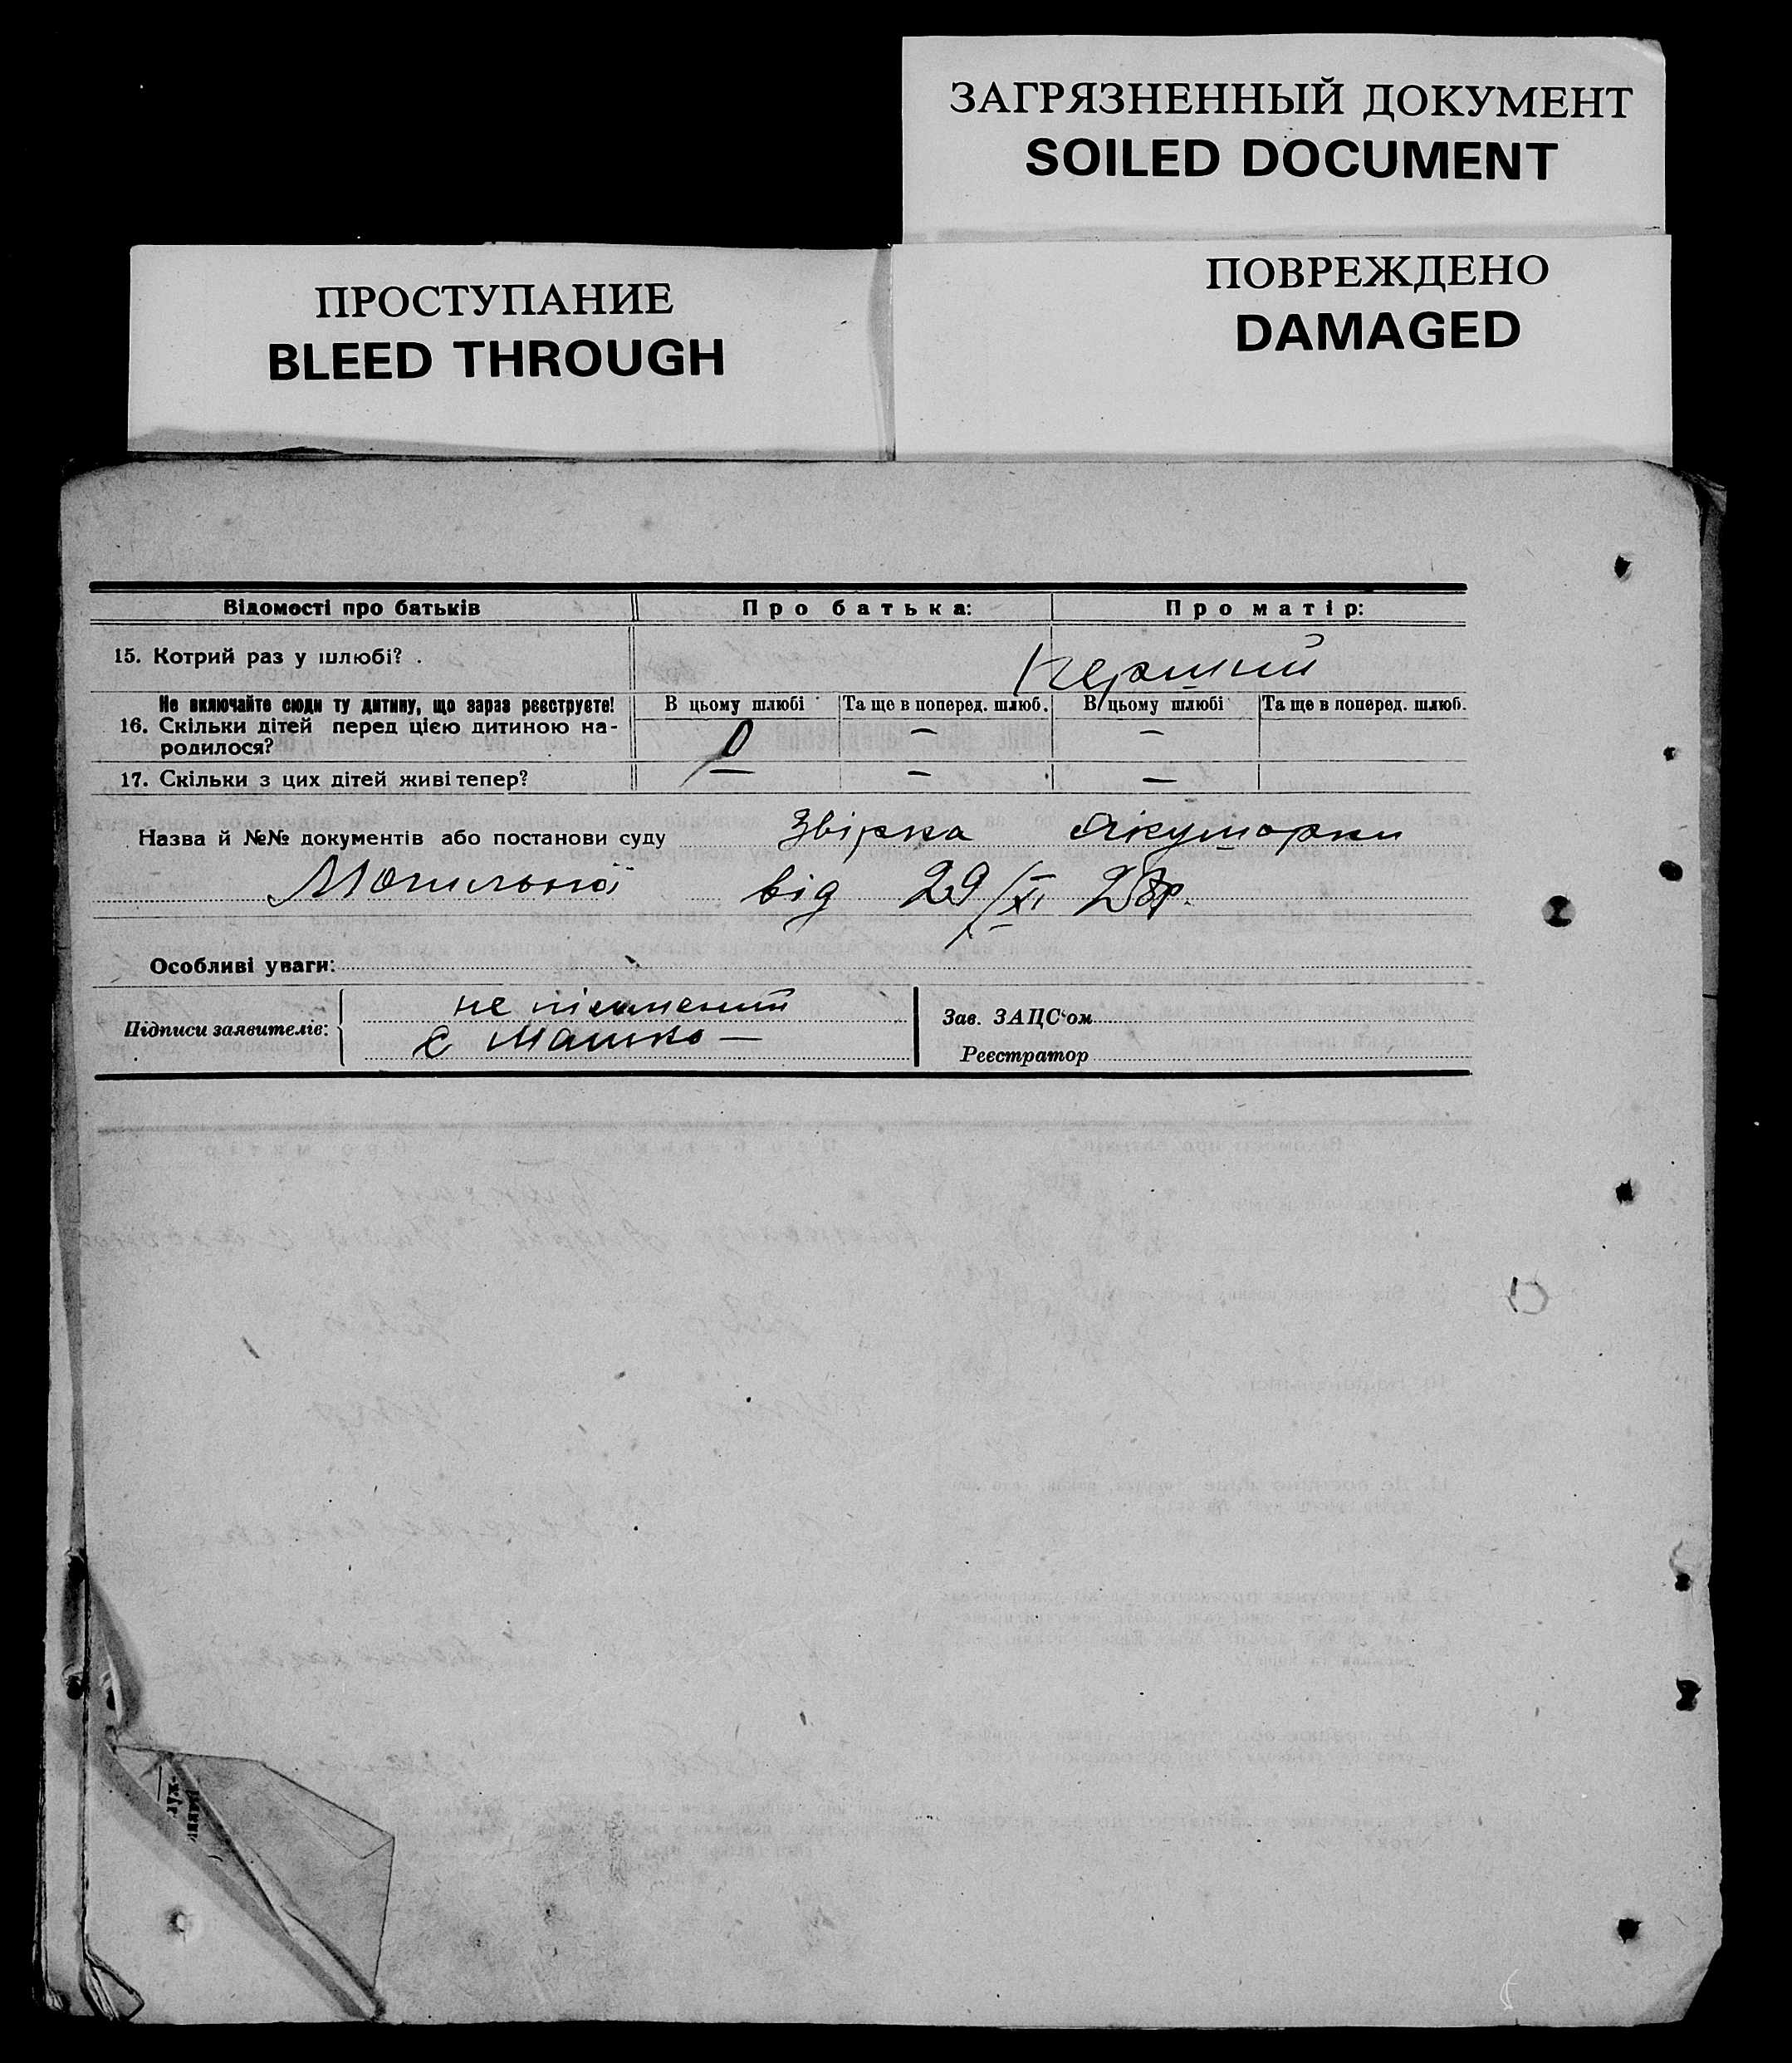 ЗАГРЯЗНЕННЫЙ ДОКУМЕНТ
SOILED DOCUMENT
ПРОСТУПАНИЕ
BLEED THROUGH
ПОВРЕЖДЕНО
DAMAGED
Відомості про батьків Про батька: Про матір:
15. Котрий раз у шлюбі? . перший
Не включайте сюди ту дитину, що зараз реєструєте! В цьому шлюбі Та ще в поперед. шлюб. В цьому шлюбі Та ще в поперед. шлюб.
16. Скільки дітей перед цією дитиною на-
родилося? 0 — —
17. Скільки з цих дітей живі тепер? — — —
Назва й №№ документів або постанови суду Звірка Якушорки
від 29/XI 28р.
Особливі уваги:
не пісьмений
Підписи заявителів: Є Машко — Зав. ЗАЦС'ом
Реєстратор